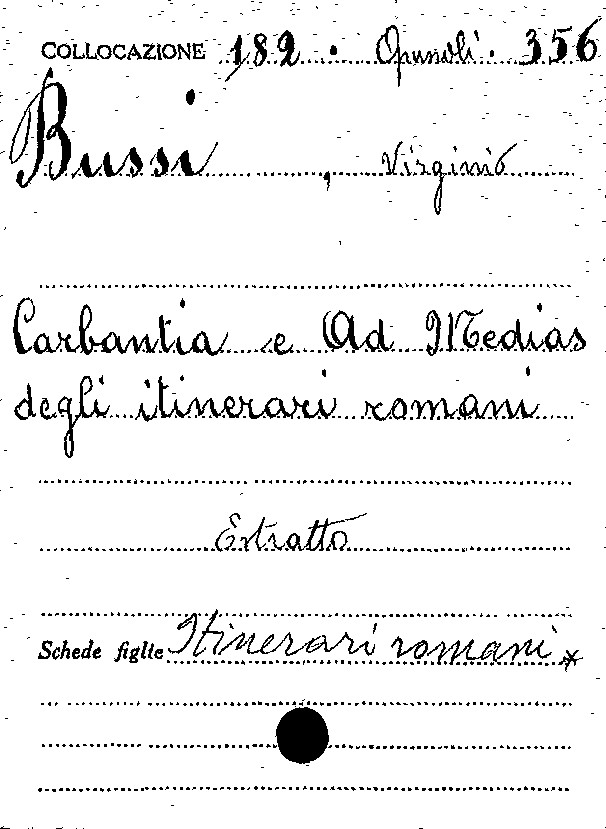 COLLOCAZIONE 182 · Opuscoli · 356
Bussi, Virginio
Carbantia e Ad Medias
degli itinerari romani
Estratto
Schede figlie Itinerari romani *